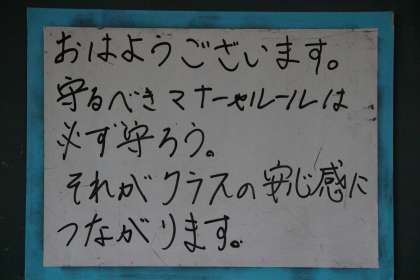 おはようございます。
守るべきマナーやルールは
必ず守ろう。
それがクラスの安心感に
つながります。